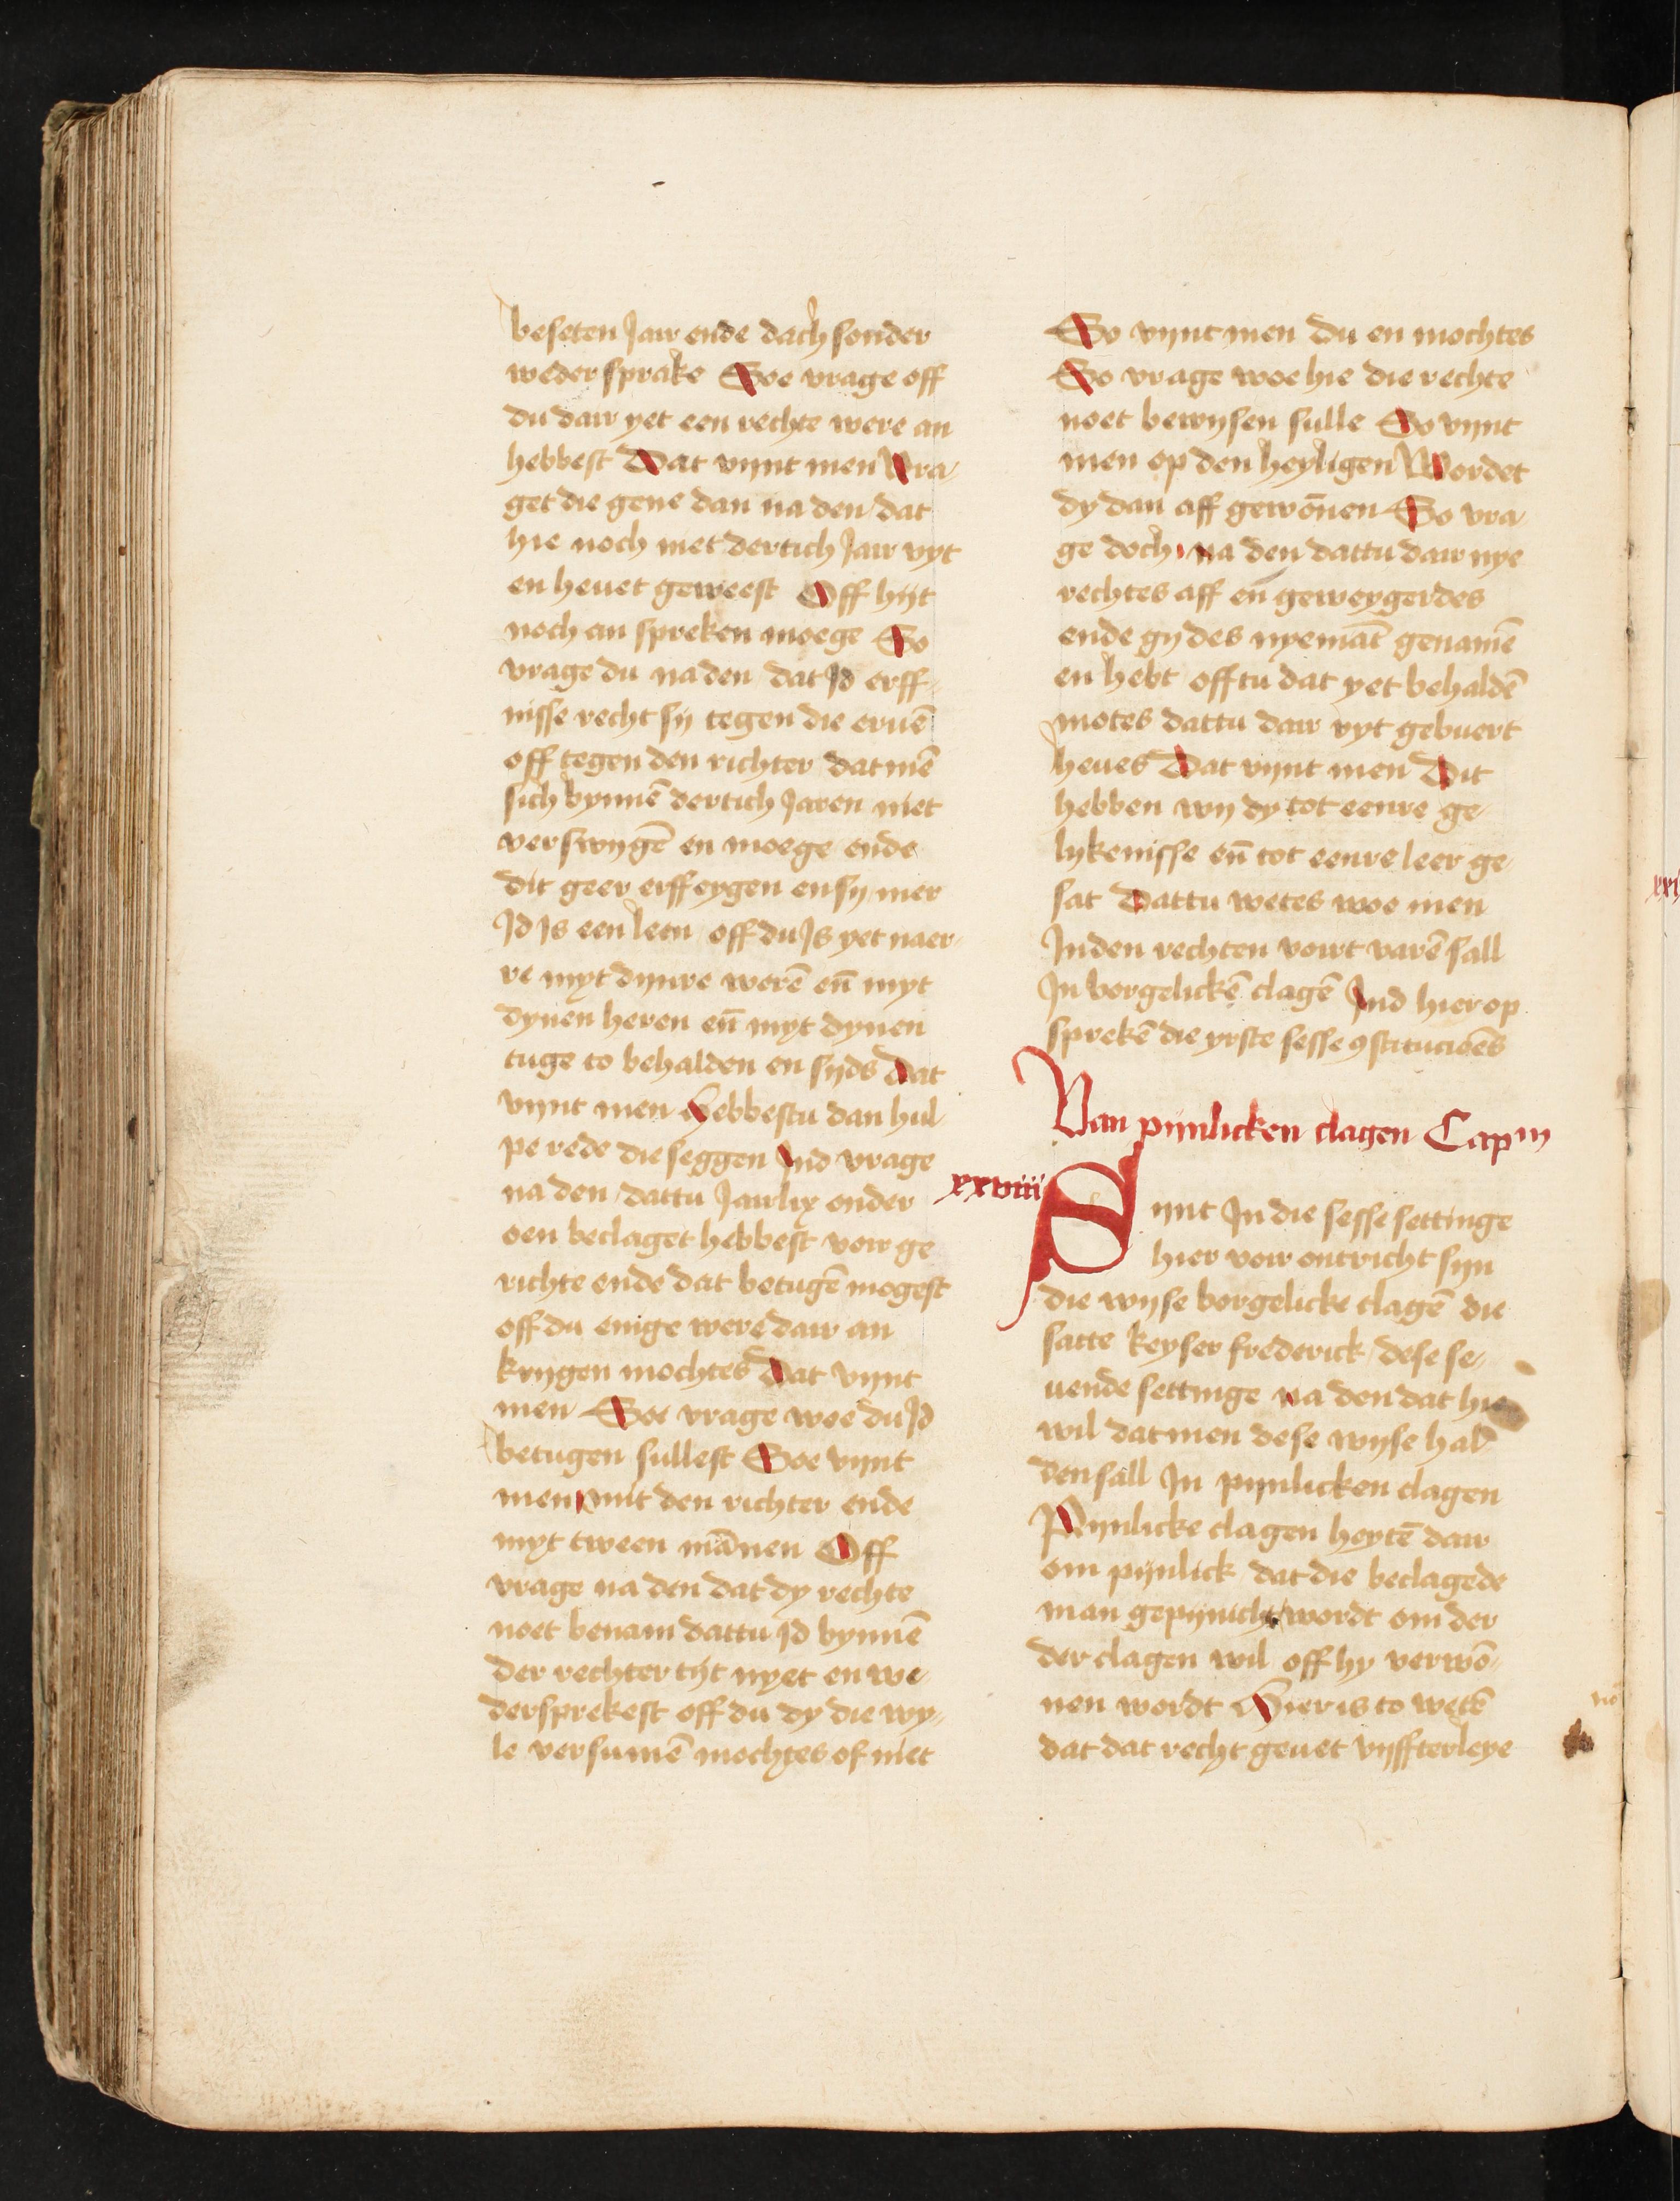 beseten Jair ende dach sonder
weder sprake Soe vrage off
du dair yet een rechte were an
hebbest Dat vynt men Vra-
get die gene dan na den dat
hie noch niet dertich Jair vyt
en heuet geweest Off hijt
noch an spreken moege So
vrage du na den dat Jd erff-
nisse recht sij tegen die eruē
off tegen den richter dat mē
sich bynnē dertich Jaren niet
verswygē en moege ende
dit geer erff eygen en sy mer
Jd Js een leen off du Js yet naer-
re myt dynre werē eñ myt
dynen heren eñ myt dynen
tuge to behalden en syds Dat
vynt men Hebbestu dan hul-
pe rede die seggen Jnd vrage
na den dattu Jairlix onder
oen beclaget hebbest voir ge
richte ende dat betugē mogest
off du enige were dair an
krygen mochtes Dat vynt
men Soe vrage woe du Jd
betugen sullest Soe vynt
men mit den richter ende
myt tween mānen Off
vrage na den dat dy rechte
noet benam dattu Jd bynnē
der rechter tijt nyet en we-
dersprekest off du dy die wy-
le versumē mochtes of niet
So vynt men du en mochtes
So vrage woe hie die rechte
noet bewysen sulle So vynt
men op den heyligen Wordet
dy dan aff gewōnen So vra
ge doch na den dattu dair nye
rechtes aff eñ geweygerdes
ende gy des nyemāt genamē
en hebt off tu dat yet behaldē
motes dattu dair vyt gebuert
heues Dat vynt men Dit
hebben wy dy tot eenre ge-
lykenisse eñ tot eenre leer ge-
sat Dattu wetes woe men
Jn den rechten voirt varē sall
Jn borgelickē clagē Jnd hier op
sprekē die yrste sesse ꝯstitucioēs
Van pynlicken clagen Capm
xxviii
Synt Jn die sesse settinge
hier voir ontricht syn
die wyse borgelicke clagē die
satte keyser frederick dese se-
uende settinge na den dat hie
wil dat men dese wyse hal
den sall Jn pynlicken clagen
Pynlicke clagen heytē dair
om pynlick dat die beclagede
man gepynicht wordt om der
der clagen wil off hy verwō-
nen wordt Hier is to wetē
dat dat recht geuet vyffterleye